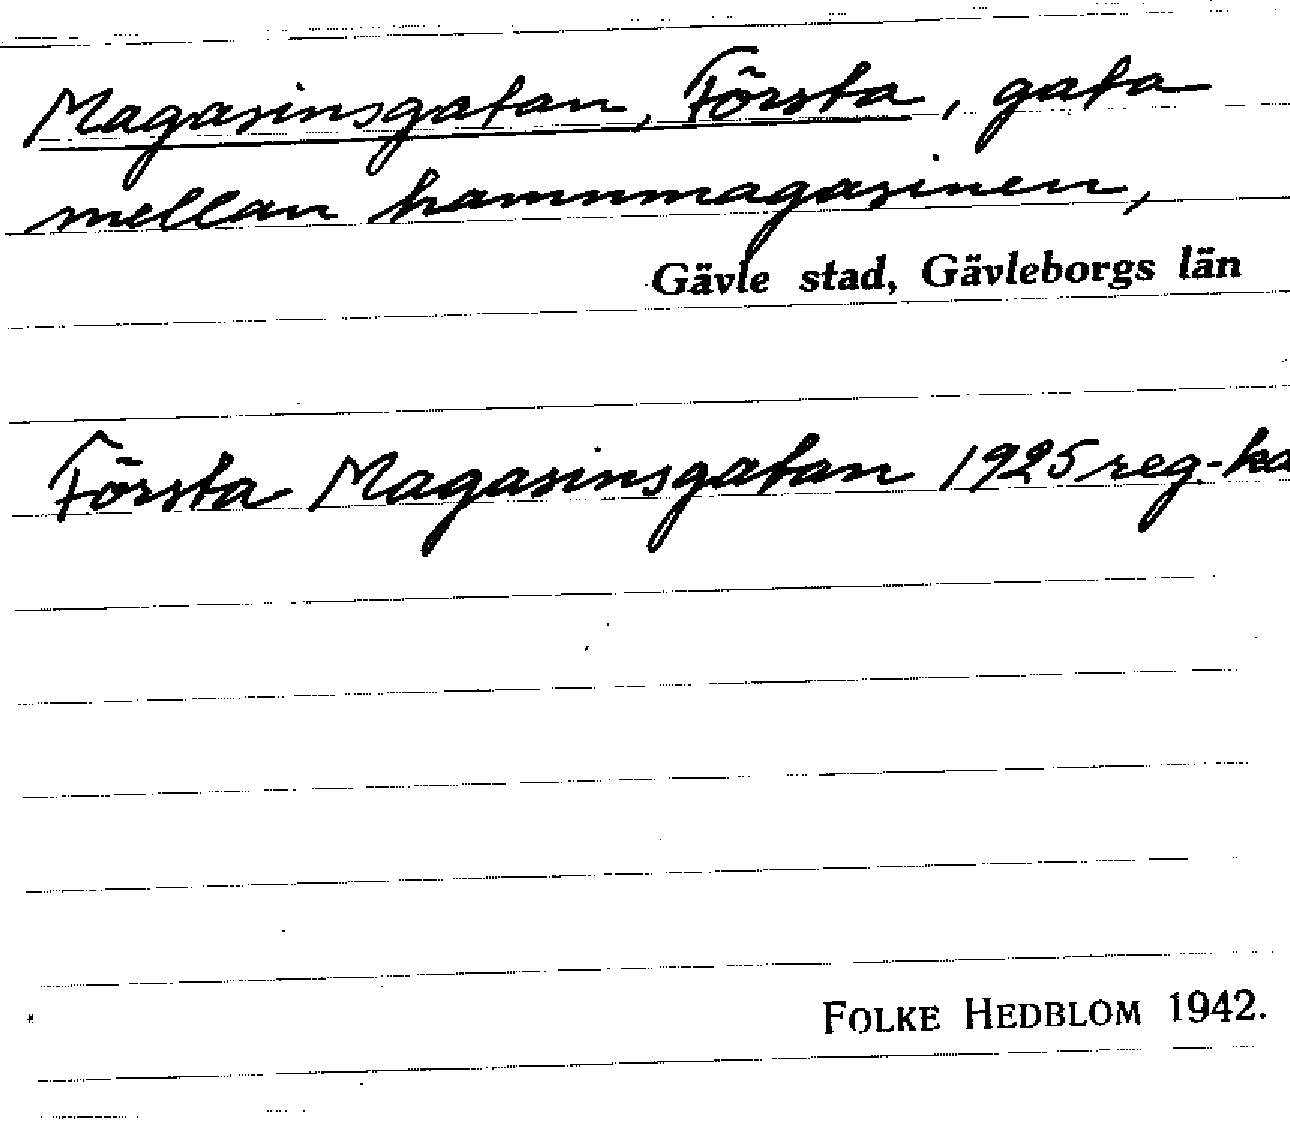 Magasinsgatan, Första, gata
mellan hamnmagasinen,
Gävle stad, Gävleborgs län
Första Magasinsgatan 1925 reg.-ka
FOLKE HEDBLOM 1942.